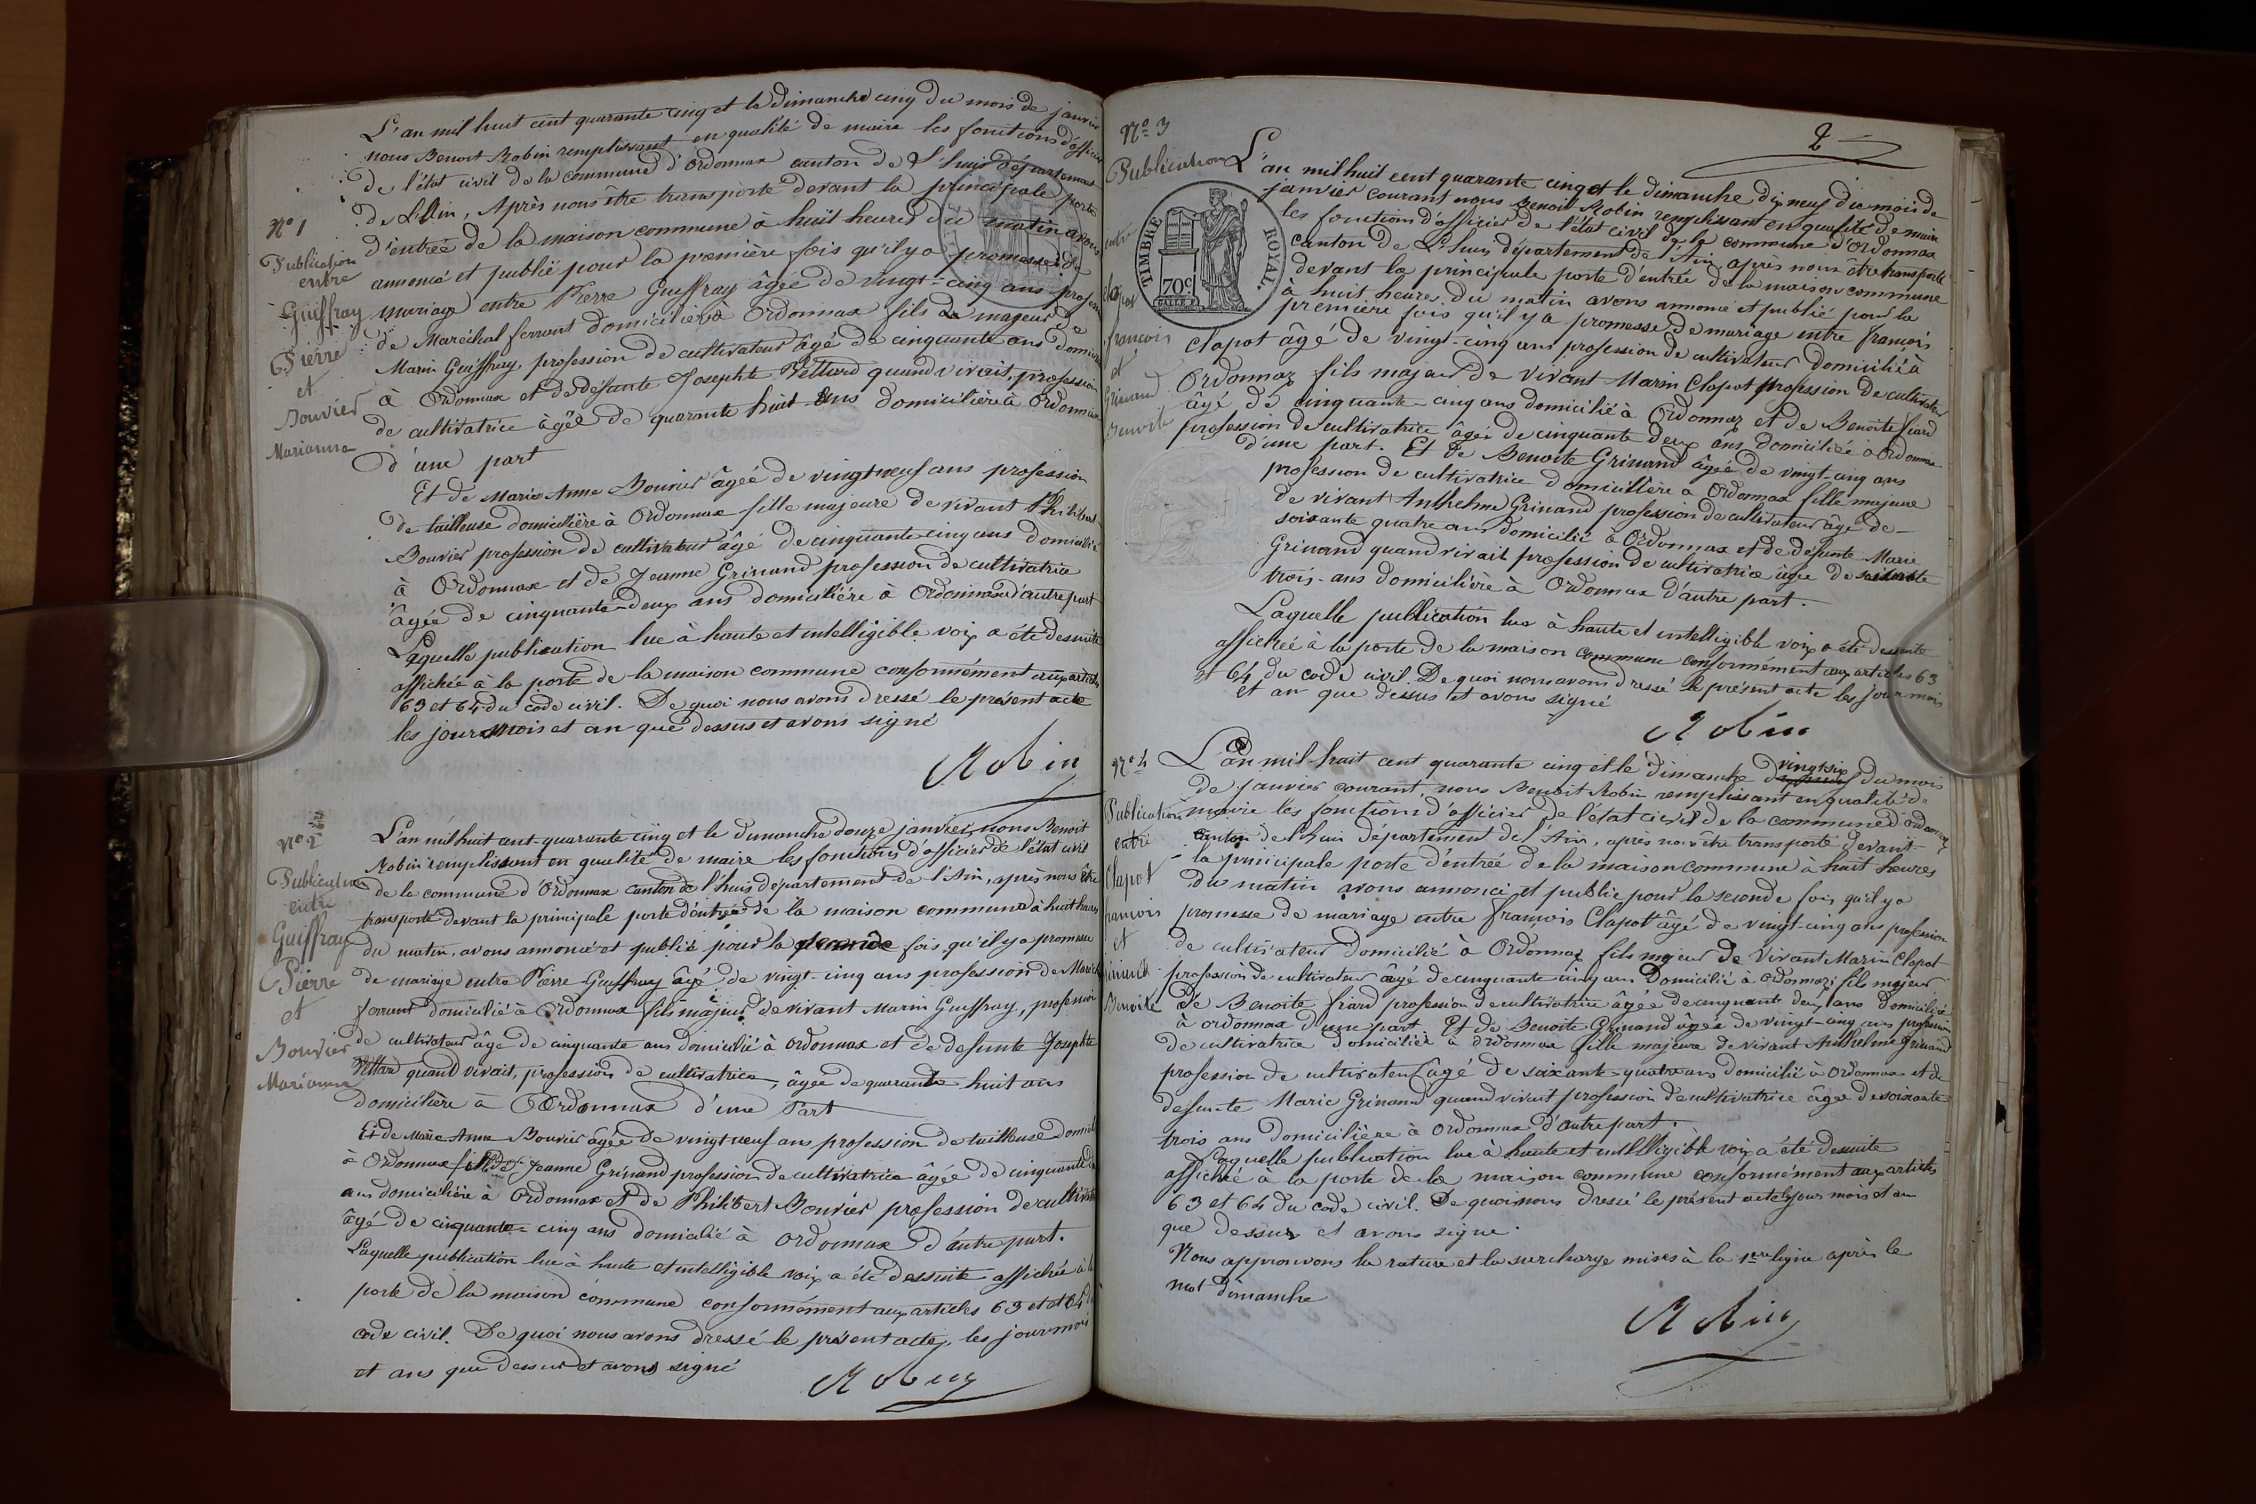 L'an mil huit cent quarante cinq et le dimanche cinq du mois de janvier
nous Benoit Robin remplissant en qualité de maire les fonctions d'officier
de l'état civil de la commune d'Ordonnax canton de L'huis département
de L'Ain, Après nous être transporté devant la principale porte
d'entrée de la maison commune à huit heures du matin avons
annoncé et publié pour la première fois qu'il y a promesse de
mariage entre Pierre Guiffray âgée de vingt-cinq ans profession
de Maréchal ferrant domicilière à Ordonnax fils majeur de
Marin Guiffray, profession de cultivateur âgé de cinquante ans domicilié
à Ordonnax et de défunte Josephte Vettard quand vivait, profession
de cultivatrice âgée de quarante huit ans domicilière à Ordonnax
d'une part
Et de Marie Anne Bouvier âgée de vingt neuf ans profession
de tailleuse domicilière à Ordonnax fille majeure de vivant Philibert
Bouvier profession de cultivateur âgé de cinquante cinq ans domicilié
à Ordonnax et de Jeanne Grinand profession de cultivatrice
âgée de cinquante-deux ans domicilière à Ordonnax d'autre part
Laquelle publication lue à haute et intelligible voix a été desuite
affichée à la porte de la maison commune conformément aux articles
63 et 64 du code civil. De quoi nous avons dressé le présent acte
les jour mois et an que dessus et avons signé
Robin
N° 1
Publication
entre
Guiffray
Pierre
et
Bouvier
Marianne
N° 2
Publication
entre
Guiffray
Pierre
et
Bouvier
Marianne
L'an mil huit cent quarante cinq et le dimanche douze janvier, nous Benoit
Robin remplissant en qualité de maire les fonctions d'officier de l'état civil
de la commune d'Ordonnax canton de l'huis département de l'Ain, après nous être
transporté devant la principale porte d'entrée de la maison commune à huit heures
du matin, avons annoncé et publié pour la seconde fois, qu'il y a promesse
de mariage entre Pierre Guiffray âgé de vingt-cinq ans profession de Maréchal
ferrant domicilié à Ordonnax fils majeur de vivant Marin Guiffray, profession
de cultivateur âgé de cinquante ans domicilié à Ordonnax et de defunte Josephte
Vettard quand vivait, profession de cultivatrice, âgée de quarante huit ans
domicilière à Ordonnax d'une Part
Et de Marie Anne Bouvier âgée de vingt neuf ans profession de tailleuse domicil
à Ordonnax fille de Jeanne Grinand profession de cultivatrice âgée de cinquante d
ans domicilière à Ordonnax et de Philibert Bouvier profession de cultivateur
âgé de cinquante-cinq ans domicilié à Ordonnax d'autre part.
Laquelle publication lue à haute et intelligible voix a été dessuite affichée à la
porte de la maison commune conformément aux articles 63 et 64
code civil. De quoi nous avons dressé le présent acte, les jour mois
et ans que dessus et avons signé
Robin
2
N° 3
Publication
entre
Clapot
françois
et
Grinand
Benoite
TIMBRE ROYAL.
70c
L'an mil huit cent quarante cinq et le dimanche dix neuf du mois de
janvier courant nous Benoit Robin remplissant en qualité de maire
les fonctions d'officier de l'état civil de la commune d'Ordonnax
canton de L'huis département de l'Ain, après nous être transporté
devant la principale porte d'entrée de la maison commune
à huit heures du matin avons annoncé et publié pour la
première fois qu'il y a promesse de mariage entre françois
Clapot âgé de vingt-cinq ans profession de cultivateur domicilié à
Ordonnax fils majeur de vivant Marin Clapot profession de cultivateur
âgé de cinquante-cinq ans domicilié à Ordonnax et de Benoite friard
profession de cultivatrice âgée de cinquante deux ans domiciliée à Ordonnax
d'une part. Et de Benoite Grinand âgée de vingt-cinq ans
profession de cultivatrice domicilière à Ordonnax fille majeure
de vivant Anthelme Grinand profession de cultivateur âgé de
soixante quatre ans domicilié à Ordonnax et de défunte Marie
Grinand quand vivait profession de cultivatrice âgée de soixante
trois-ans domicilière à Ordonnax d'autre part.
Laquelle publication lue à haute et intelligible voix a été desuite
affichée à la porte de la maison commune conformément aux articles 63
et 64 du code civil. De quoi nous avons dressé le présent acte les jour mois
et an que dessus et avons signé
Robin
N° 4
Publication
entre
Clapot
françois
et
Grinand
Benoite
L'an mil huit cent quarante cinq et le dimanche vingt six du mois
de janvier courant, nous Benoit Robin remplissant en qualité de
maire les fonctions d'officier de l'état civil de la commune d'ordonnax
canton de l'huis département de l'Ain, après nous être transporté devant
la principale porte d'entrée de la maison commune à huit heures
du matin avons annoncé et publié pour la seconde fois, qu'il y a
promesse de mariage entre françois Clapot âgé de vingt-cinq ans profession
de cultivateur domicilié à Ordonnax fils majeur de vivant Marin Clapot
profession de cultivateur âgé de cinquante cinq ans domicilié à ordonnax fils majeur
de Benoite friard profession de cultivatrice âgée de cinquante deux ans domicilié
à ordonnax d'une part Et de Benoite Grinand âgée de vingt-cinq ans profession
de cultivatrice domiciliée à ordonnax fille majeure de vivant Anthelme Grinand
profession de cultivateur âgé de soixante-quatre ans domicilié à Ordonnax et de
defunte Marie Grinand quand vivait profession de cultivatrice âgée de soixante
trois ans domicilière à Ordonnax d'autre part.
Laquelle publication lue à haute et intelligible voix a été desuite
affichée à la porte de la maison commune conformément aux articles
63 et 64 du code civil. De quoi nous dressé le présent acte les jour mois et an
que dessus et avons signé.
Nous approuvons la rature et la surcharge mises à la 1ere ligne après le
mot dimanche
Robin